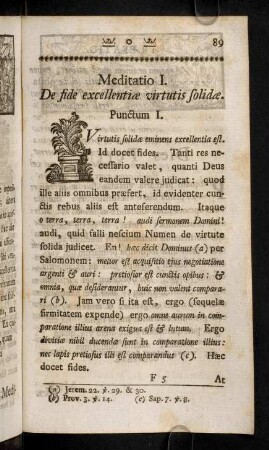 89
Meditatio I.
De fide excellentiæ virtutis solidæ.
Punctum I.
Virtutis solidæ eminens excellentia est.
Id docet fides. Tanti res ne-
cessario valet, quanti Deus
eandem valere judicat: quod
ille aliis omnibus præfert, id evidenter cun-
ctis rebus aliis est anteferendum. Itaque
o terra, terra, terra! audi sermonem Domini!
audi, quid falli nescium Numen de virtute
solida judicet. En! hæc dicit Dominus (a) per
Salomonem: melior est acquisitio ejus negotiatione
argenti & auri: pretiosior est cunctis opibus: &
omnia, quæ desiderantur, huic non valent compara-
ri (b). Jam vero si ita est, ergo (sequelæ
firmitatem expende) ergo omne aurum in com-
paratione illius arena exigua est & lutum. Ergo
divitiæ nihil ducendæ sunt in comparatione illius:
nec lapis pretiosus illi est comparandus (c). Hæc
docet fides.
F 5 At
(a) Jerem. 22. ℣. 29. & 30.
(b) Prov. 3. ℣. 14. (c) Sap. 7. ℣. 8.